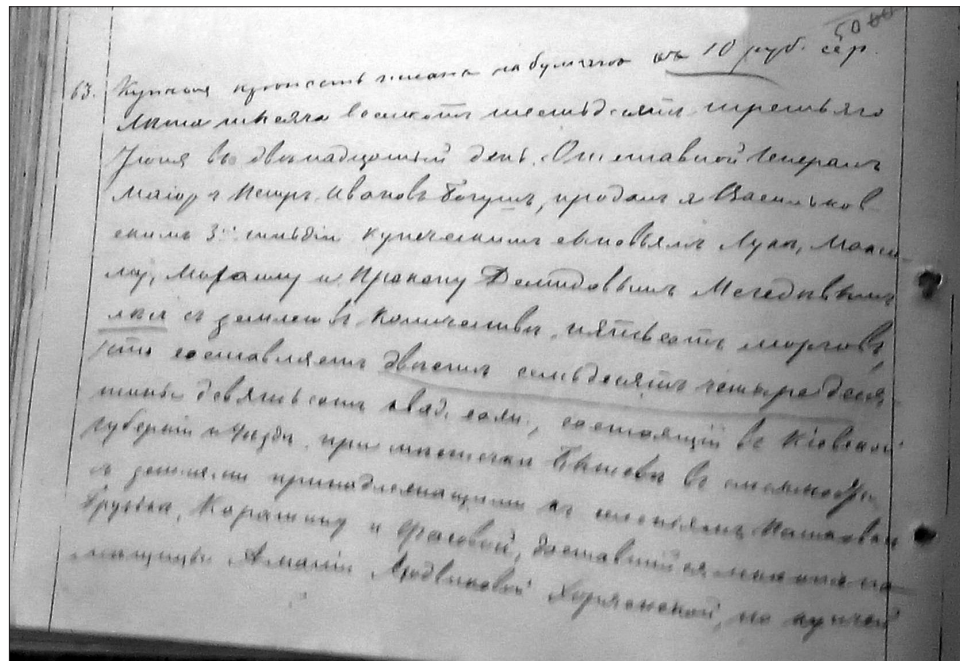 5000
63. Купчая крѣпость писана на бумагѣ въ 10 руб. сер.
Лѣта тысяча восемсотъ шестьдесятъ третьяго
Іюня въ двѣнадцатый день. Отставной Генералъ
Маіоръ Петръ Ивановъ Богушъ, продалъ я Васильков-
скимъ 3й гильдіи купеческимъ сыновьямъ Лукѣ, Макси
му, и Прокопу Демидовымъ
лѣсъ съ землею въ количествѣ пятьсотъ морговъ,
что составляетъ двѣсти семьдесятъ четыре деся
тины девятьсотъ квад. саж., состоящій въ Кіевской
губерніи и уѣздѣ при мѣстечкѣ въ смѣжности
съ землями принадлежащими къ селеніямъ
и доставшійся мнѣ отъ по
мѣщицы Амаліи Людвиковой по купчей